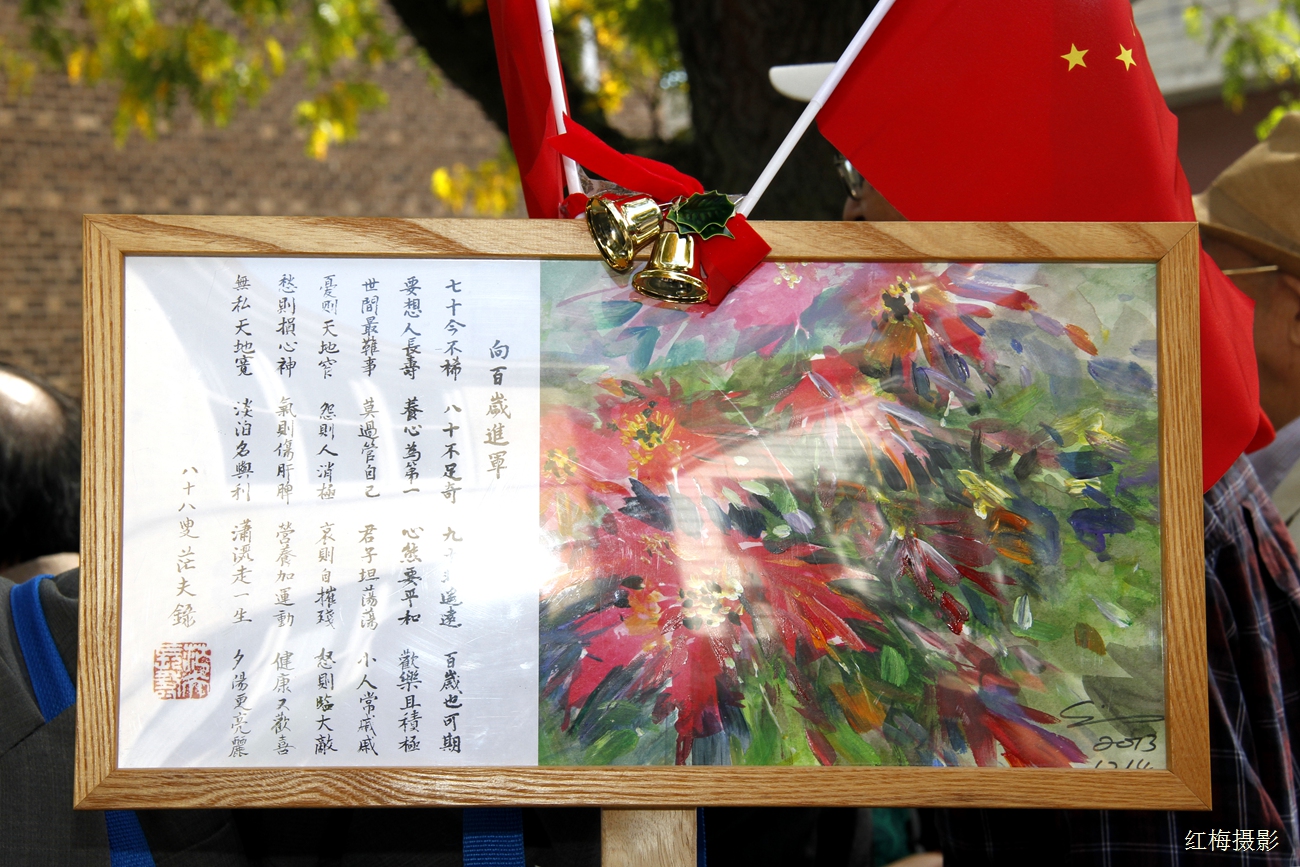 向百歲進軍
七十今不稀 八十不足奇 九十遙遠 百歲也可期
要想人長壽 養心為第一 心態要平和 歡樂且積極
世間最難事 莫過管自己 君子坦蕩蕩 小人常戚戚
憂則天地窄 怨則人消極 哀則自摧殘 怒則臨大敵
愁則損心神 氣則傷肝脾 營養加運動 健康又歡喜
無私天地寬 淡泊名與利 瀟灑走一生 夕陽更亮麗
八十八叟茫夫錄
2013
红梅摄影